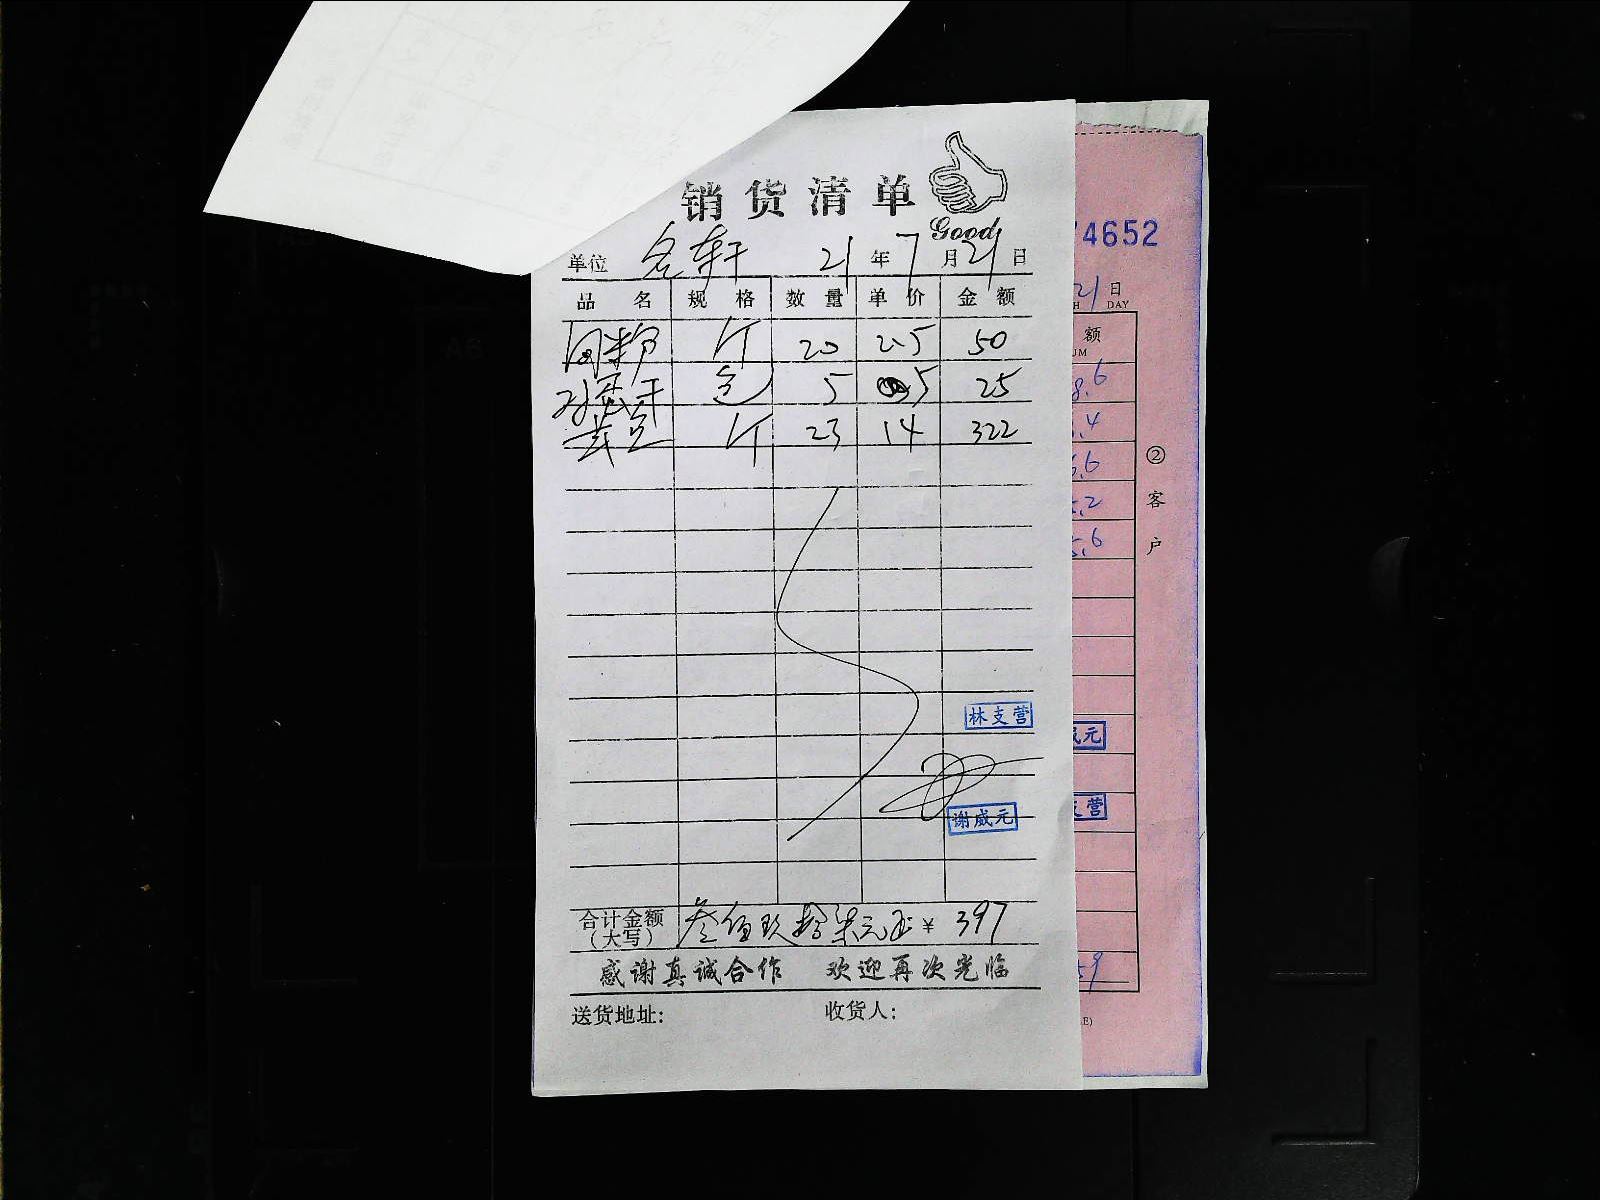 销货清单
Good
单位 名轩 21年7月21日
品名 规格 数量 单价 金额
斤 20 2.5 50
包 5 5 25
黄豆 斤 23 14 322
林支营
谢威元
合计金额（大写） 叁佰玖拾柒元正 ¥ 397
感谢真诚合作 欢迎再次光临
送货地址: 收货人:
4652
21日
DAY
额
②客户
元
营